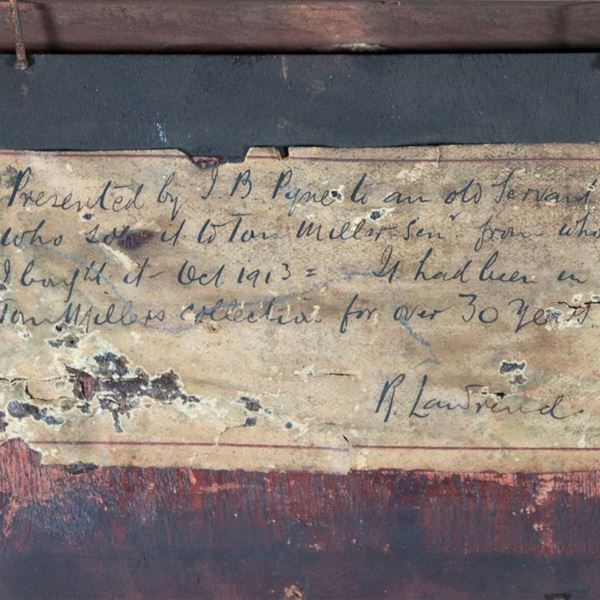 Presented by J. B. Pyne to an old Servant
who sold it to Tom Miller Senr from who
I bought it - Oct 1913 = It had been in
Tom Millers collection for over 30 Years
R. Lawrence